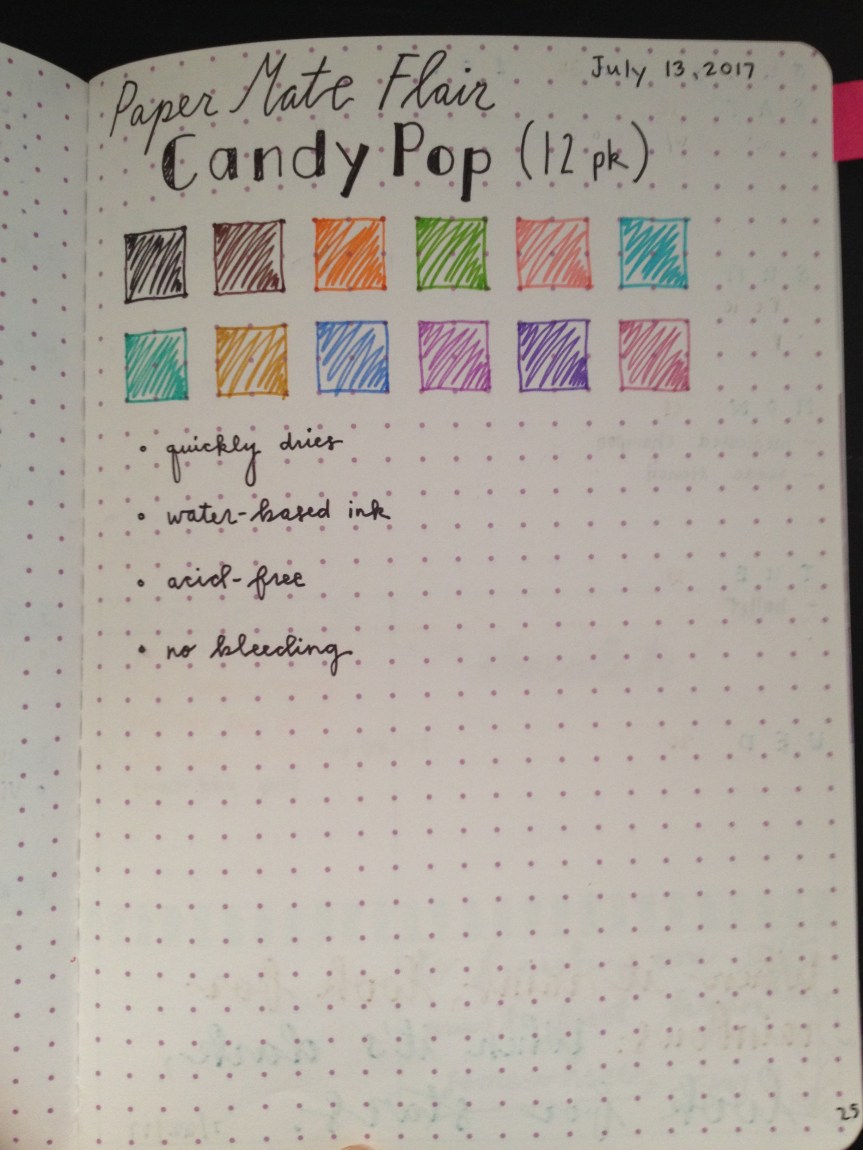 Paper Mate Flair
July 13, 2017
Candy Pop (12 pk)
• quickly dries
• water-based ink
• acid-free
• no bleeding
25